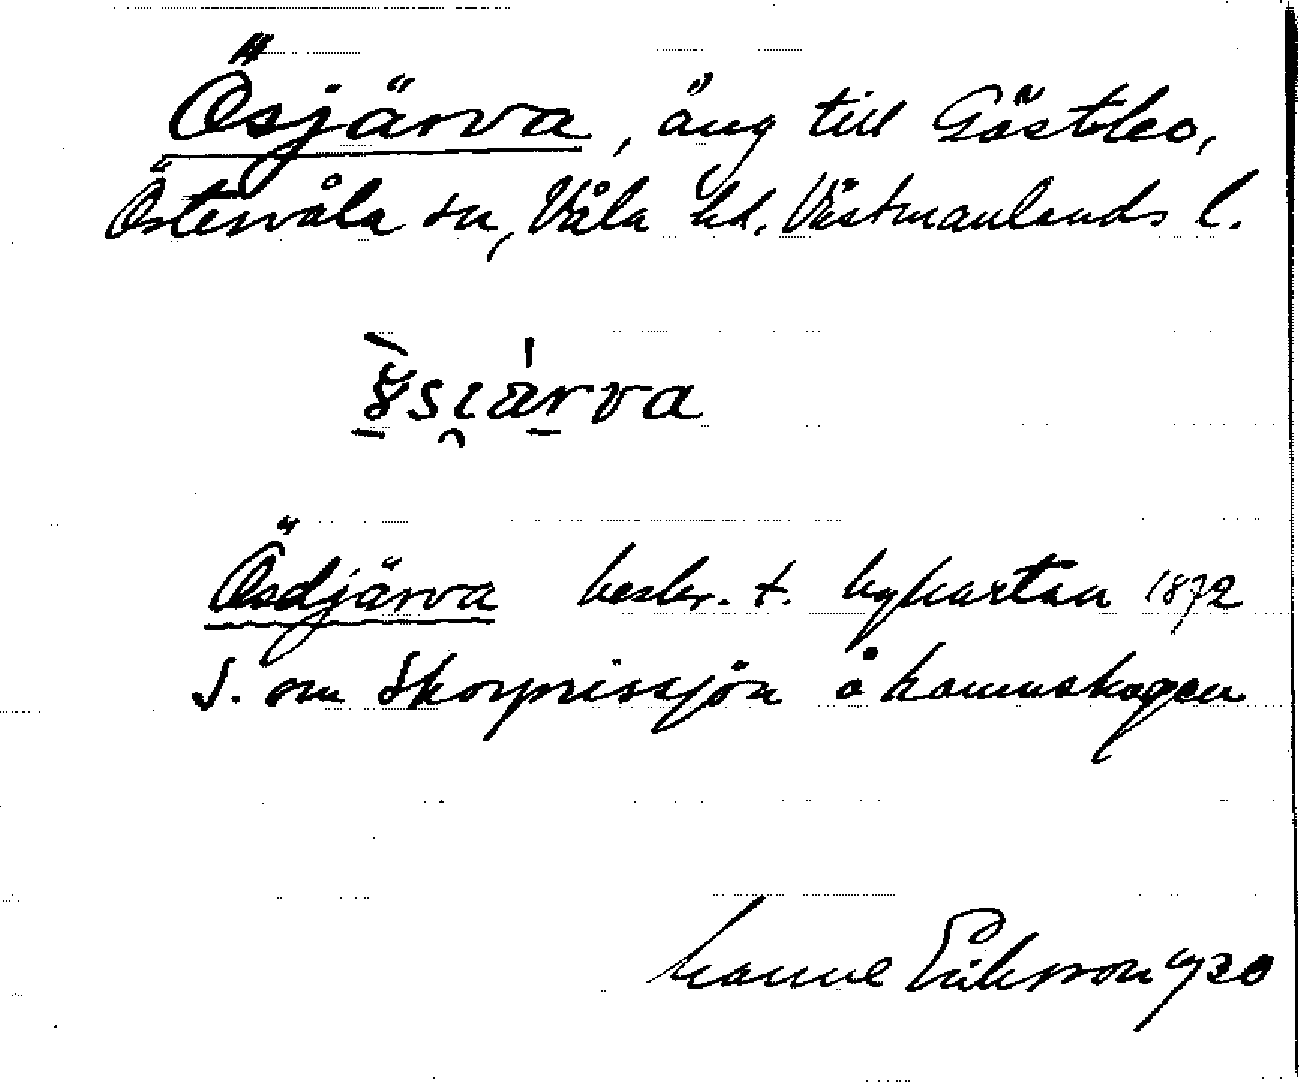 Ösjärva, äng till Gästbo,
Östervåla sn, Våla hd. Västmanlands l.
Ösdjärva beskr. t. bykartan 1872
S. om Skorprissjön å hamnskogen
Manne Eriksson 1920